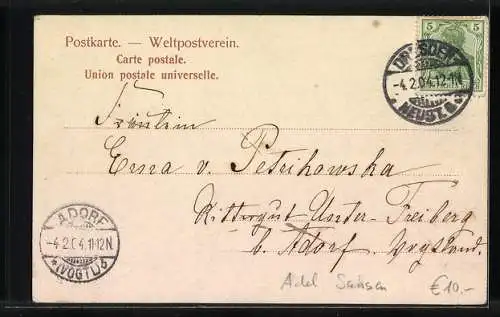 Postkarte. — Weltpostverein.
Carte postale.
Union postale universelle.
5 5
DRESDEN
-4.2.04.12.N.
* NEUST. 6 *
Fräulein
Erna v. Petrikowska
Rittergut Unter-Freiberg
b. Adorf. Vogtland.
ADORF
-4.2.04.11-12N.
*(VOGTL.)
Adel Sachsen
€10.-